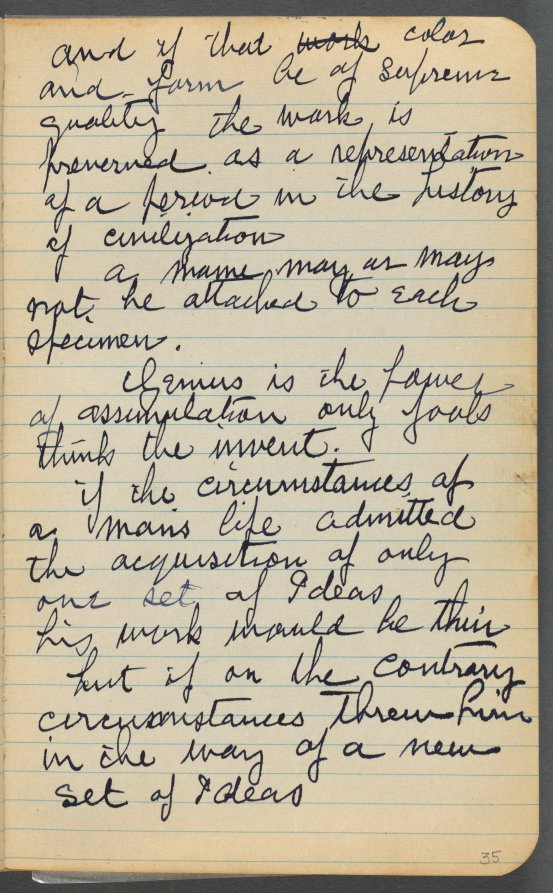 and if that work color
and form be of supreme
quality the work is
preserved as a representation
of a period in the history
of civilization
a name may or may
not be attached to each
specimen.
Genius is the power
of assimilation only fools
think the invent.
if the circumstances of
a mans life admitted
the acquisition of only
one set of Ideas
his work would be thin
but if on the contrary
circumstances threw him
in the way of a new
set of Ideas
35